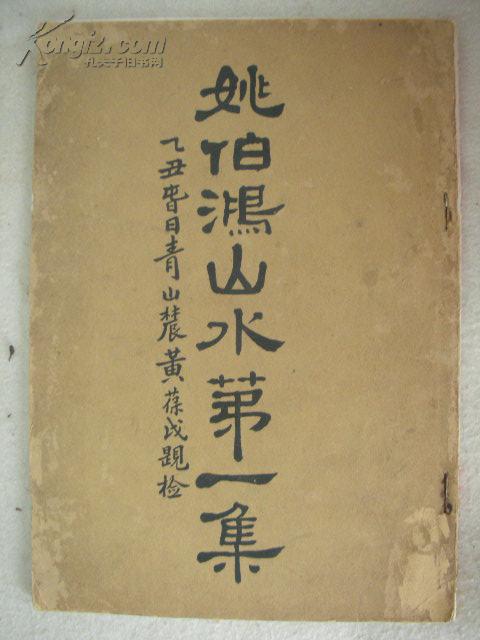 姚伯鴻山水苐一集
乙丑旾日青山農黃葆戉題檢
Kongfz.com
孔夫子旧书网